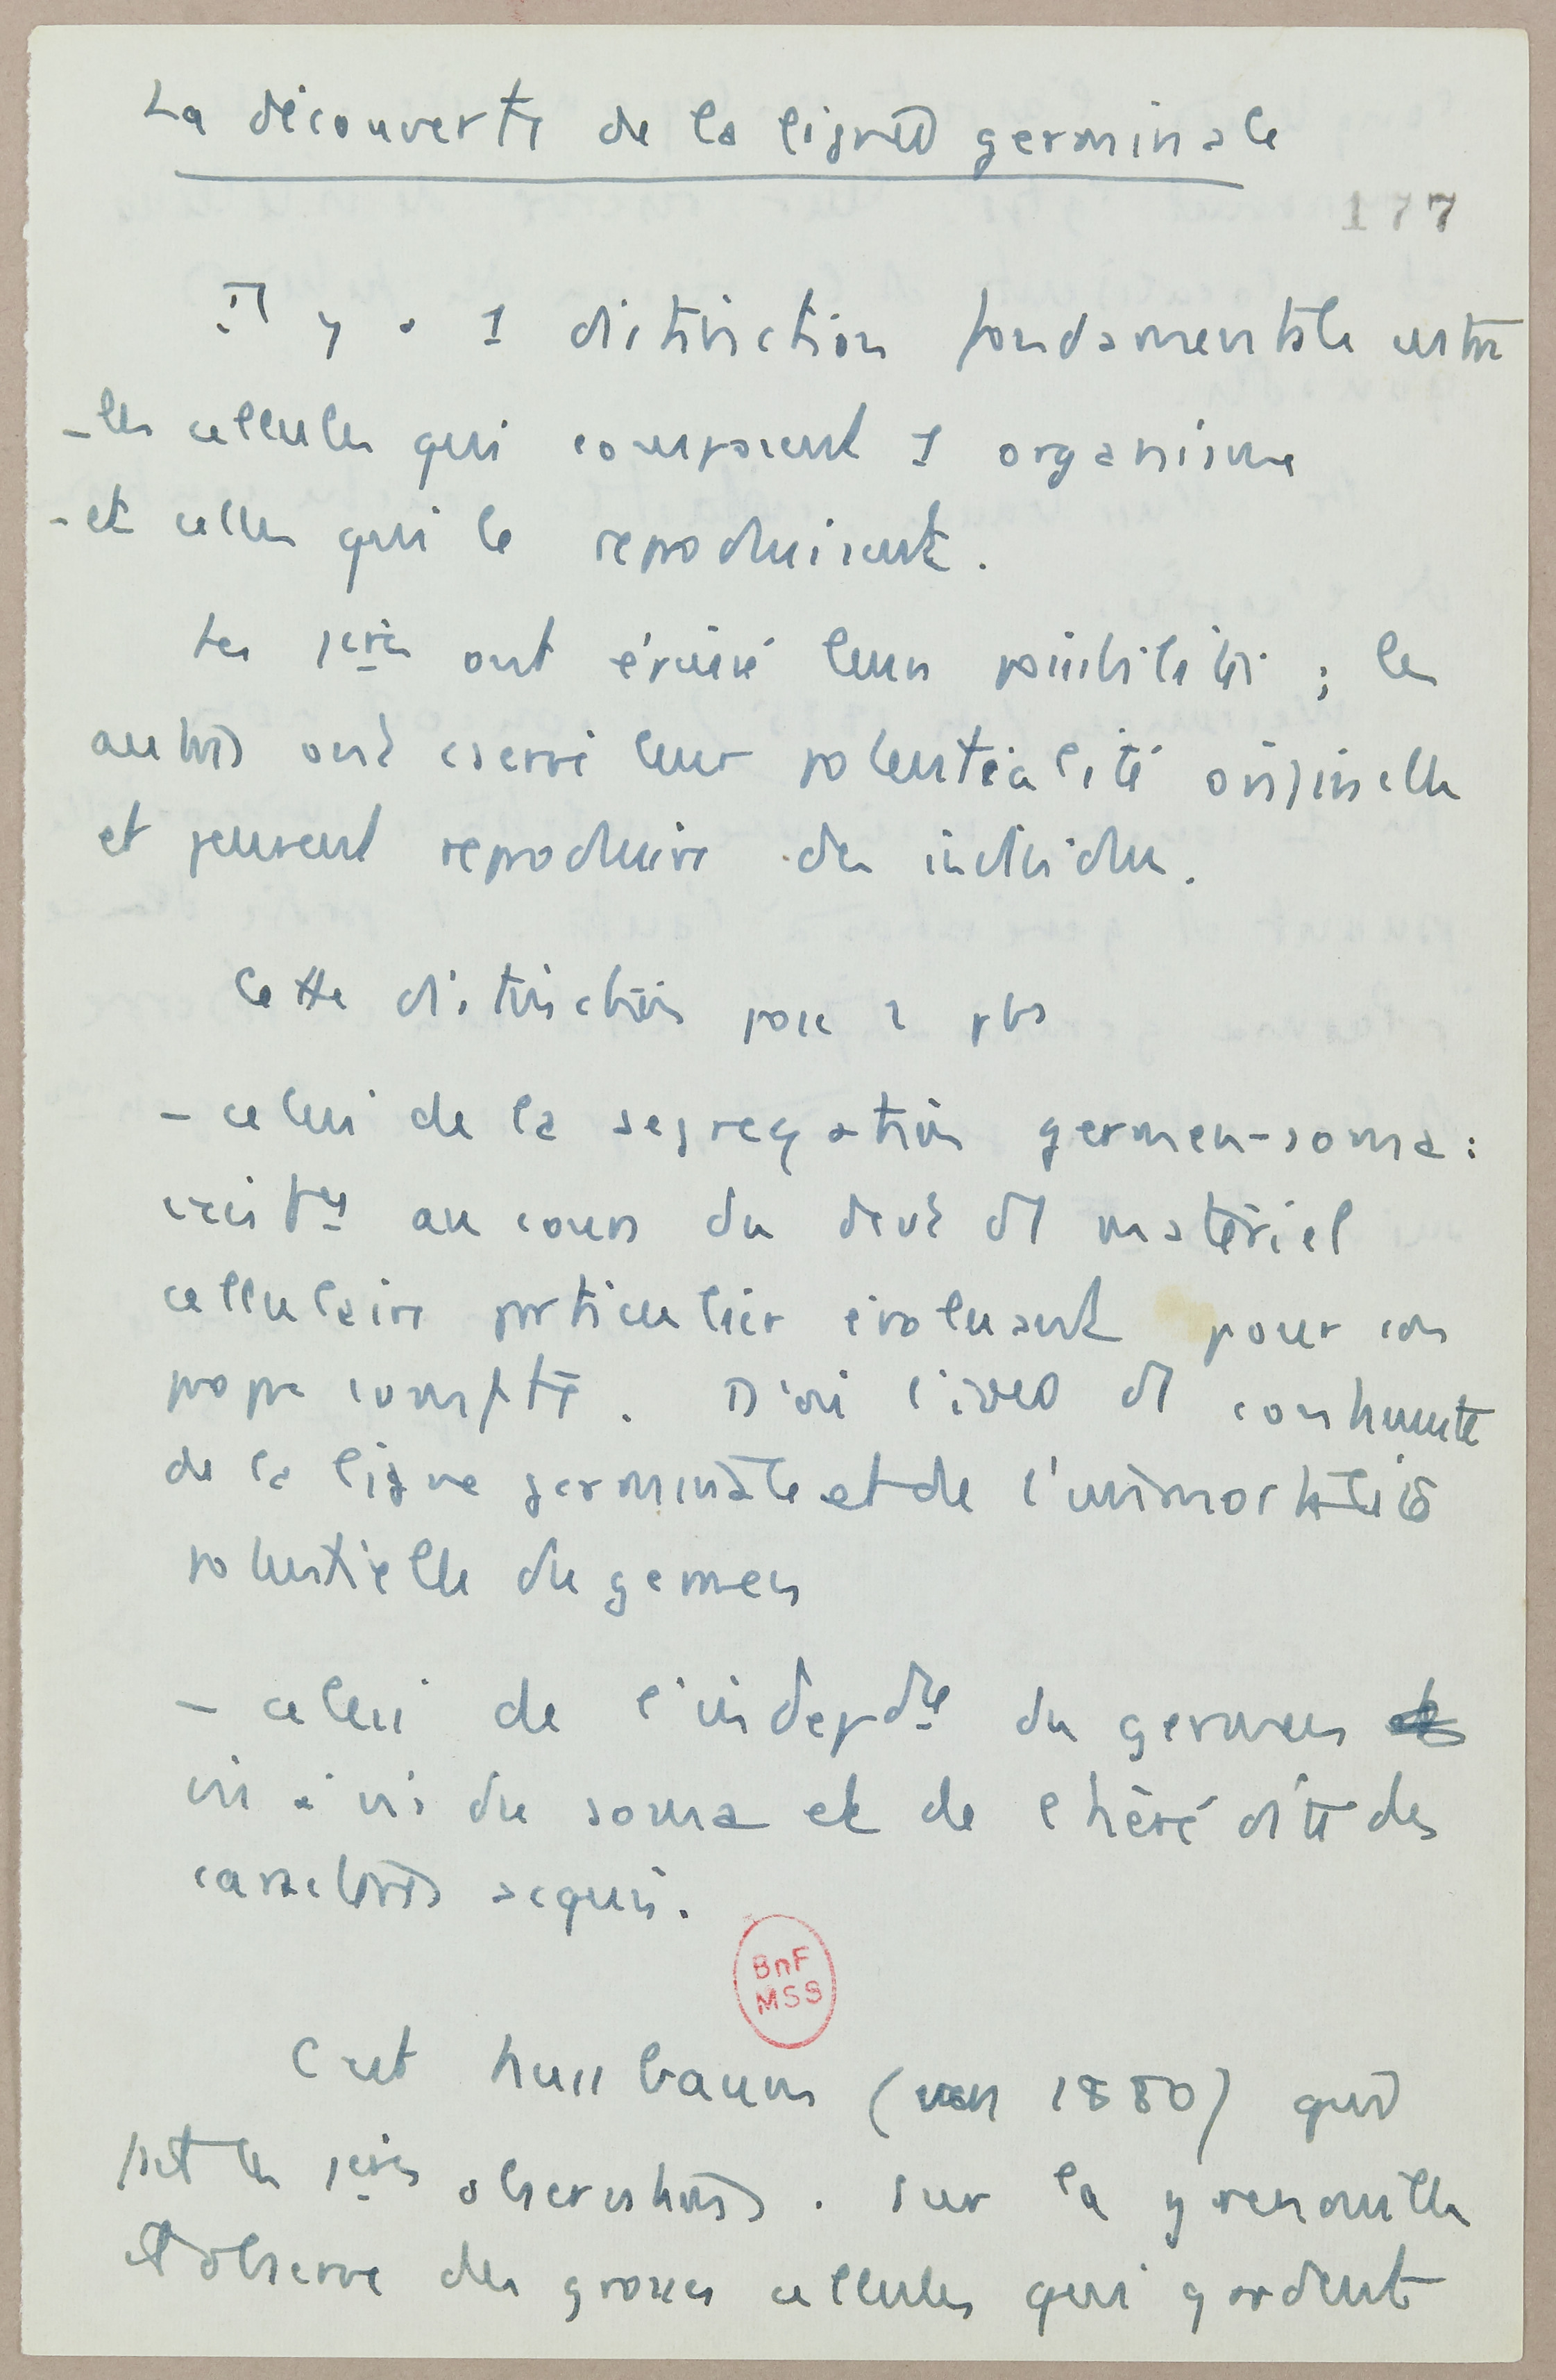 La découverte de la lignée germinale
177
Il y a 1 distinction fondamentale entre
- les cellules qui composent 1 organisme
- et celles qui le reproduisent.
Les 1ères ont épuisé leurs possibilités ; les
autres ont cservé leur potentialité originelle
et peuvent reproduire des individus.
Cette distinction pose 2 pbs
- celui de la segregation germen-soma :
au cours du devt d'1 matériel
cellulaire particulier évoluant pour son
propre compte. D'où l'idée d'1 continuité
de la ligne germinale et de l'immortalité
potentielle du germen
- celui de l'indepdce du germen
vis à vis du soma et de l'hérédité des
caractères acquis.
BnF
MSS
C'est Nussbaum (vers 1880) qui
fit les 1ères observations. Sur la grenouille
il observe des grosses cellules qui gardent